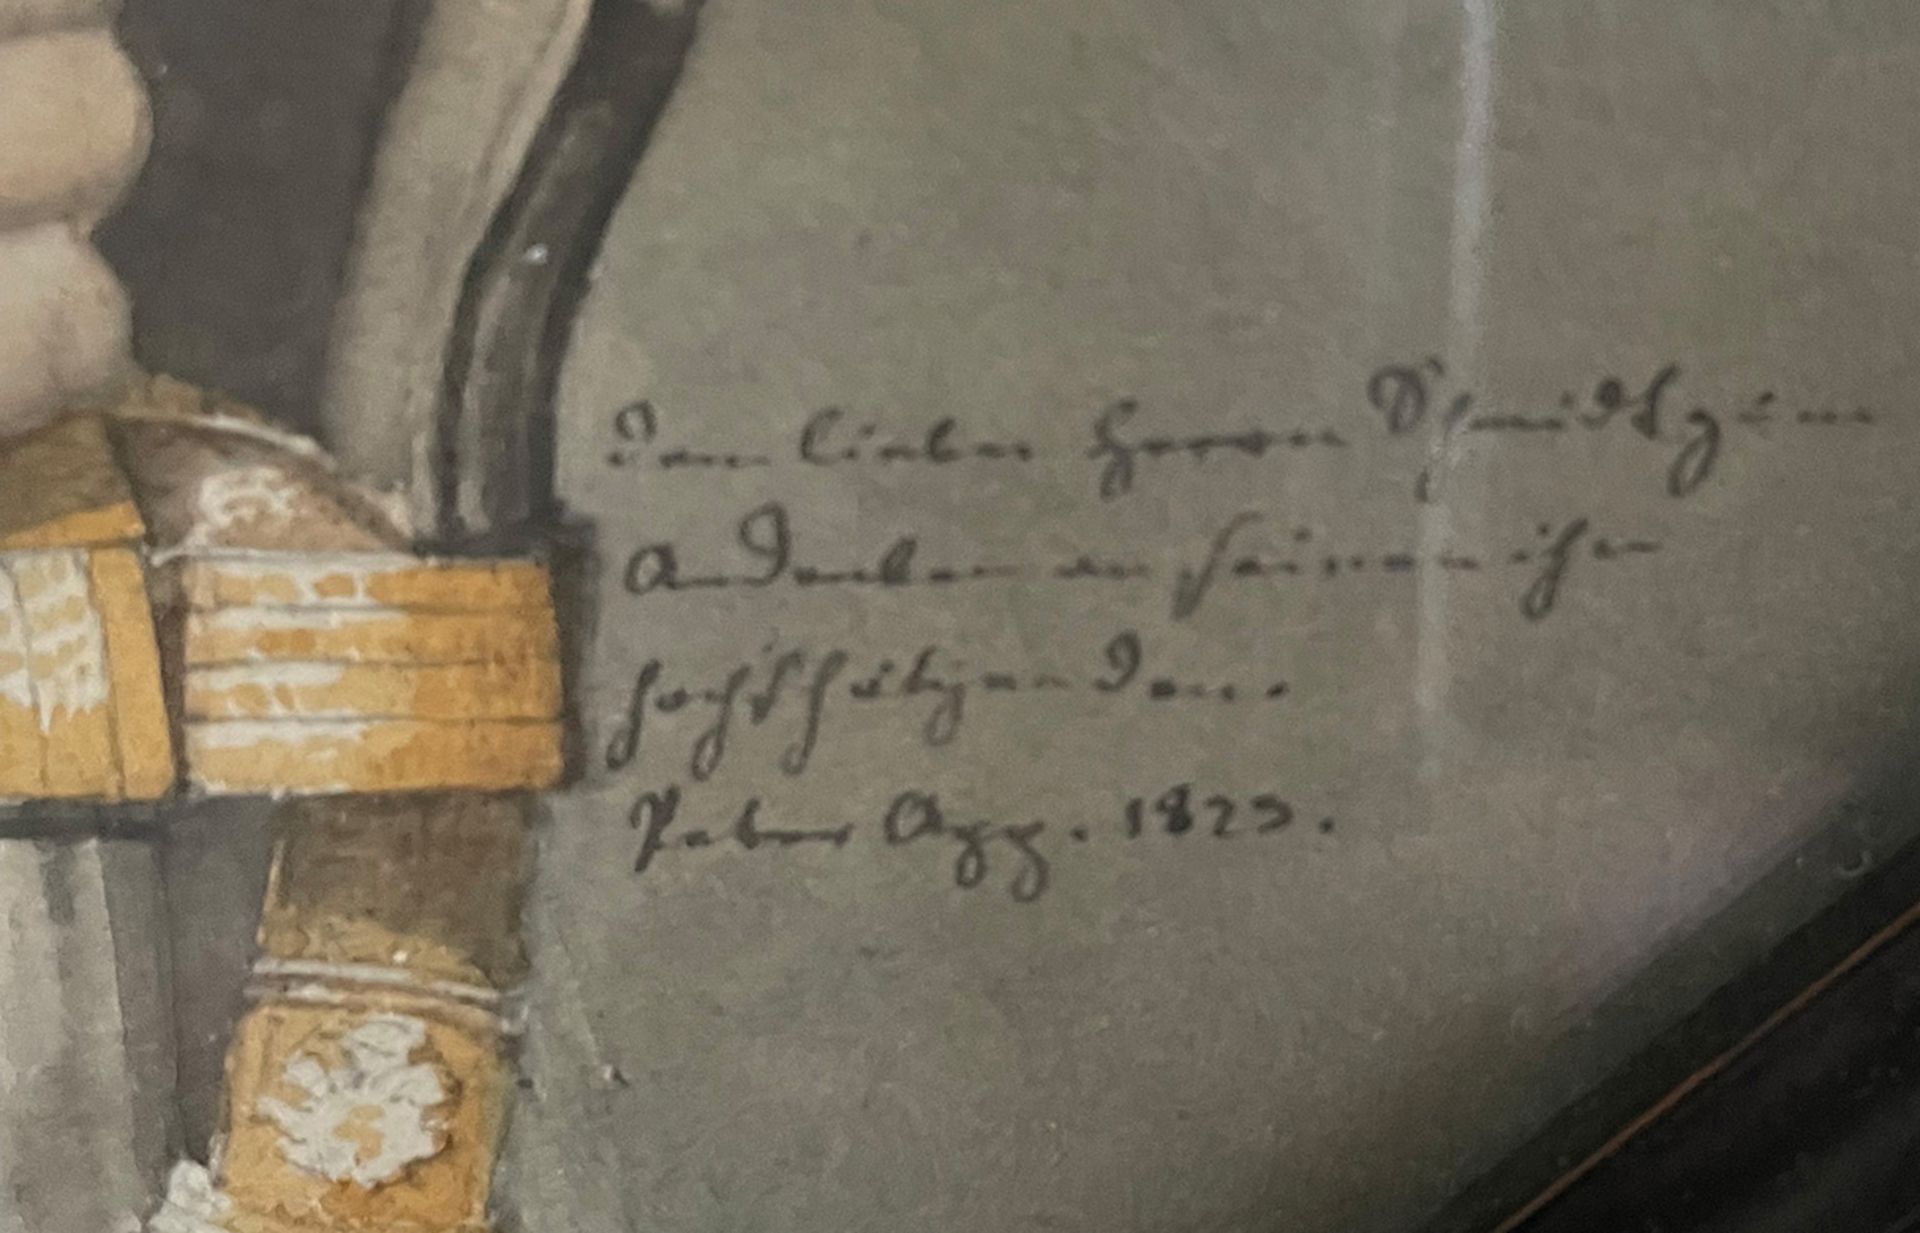 Dem lieben Herrn Schmidt zum
Andenken an seinen ihn
hochschätzenden.
Peter Agg. 1825.